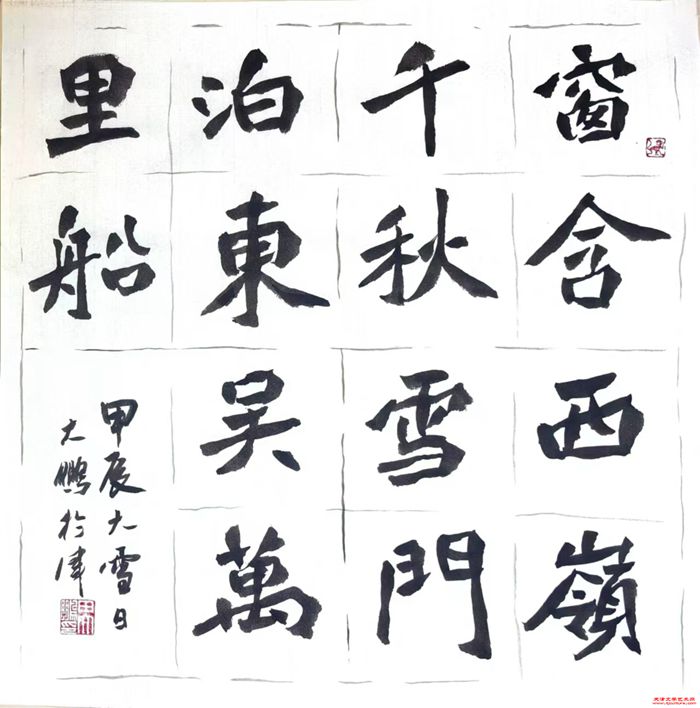 窗含西嶺
千秋雪門
泊東吴萬
里船
甲辰大雪日
大鵬於津
天津文学艺术网
www.tjculture.com